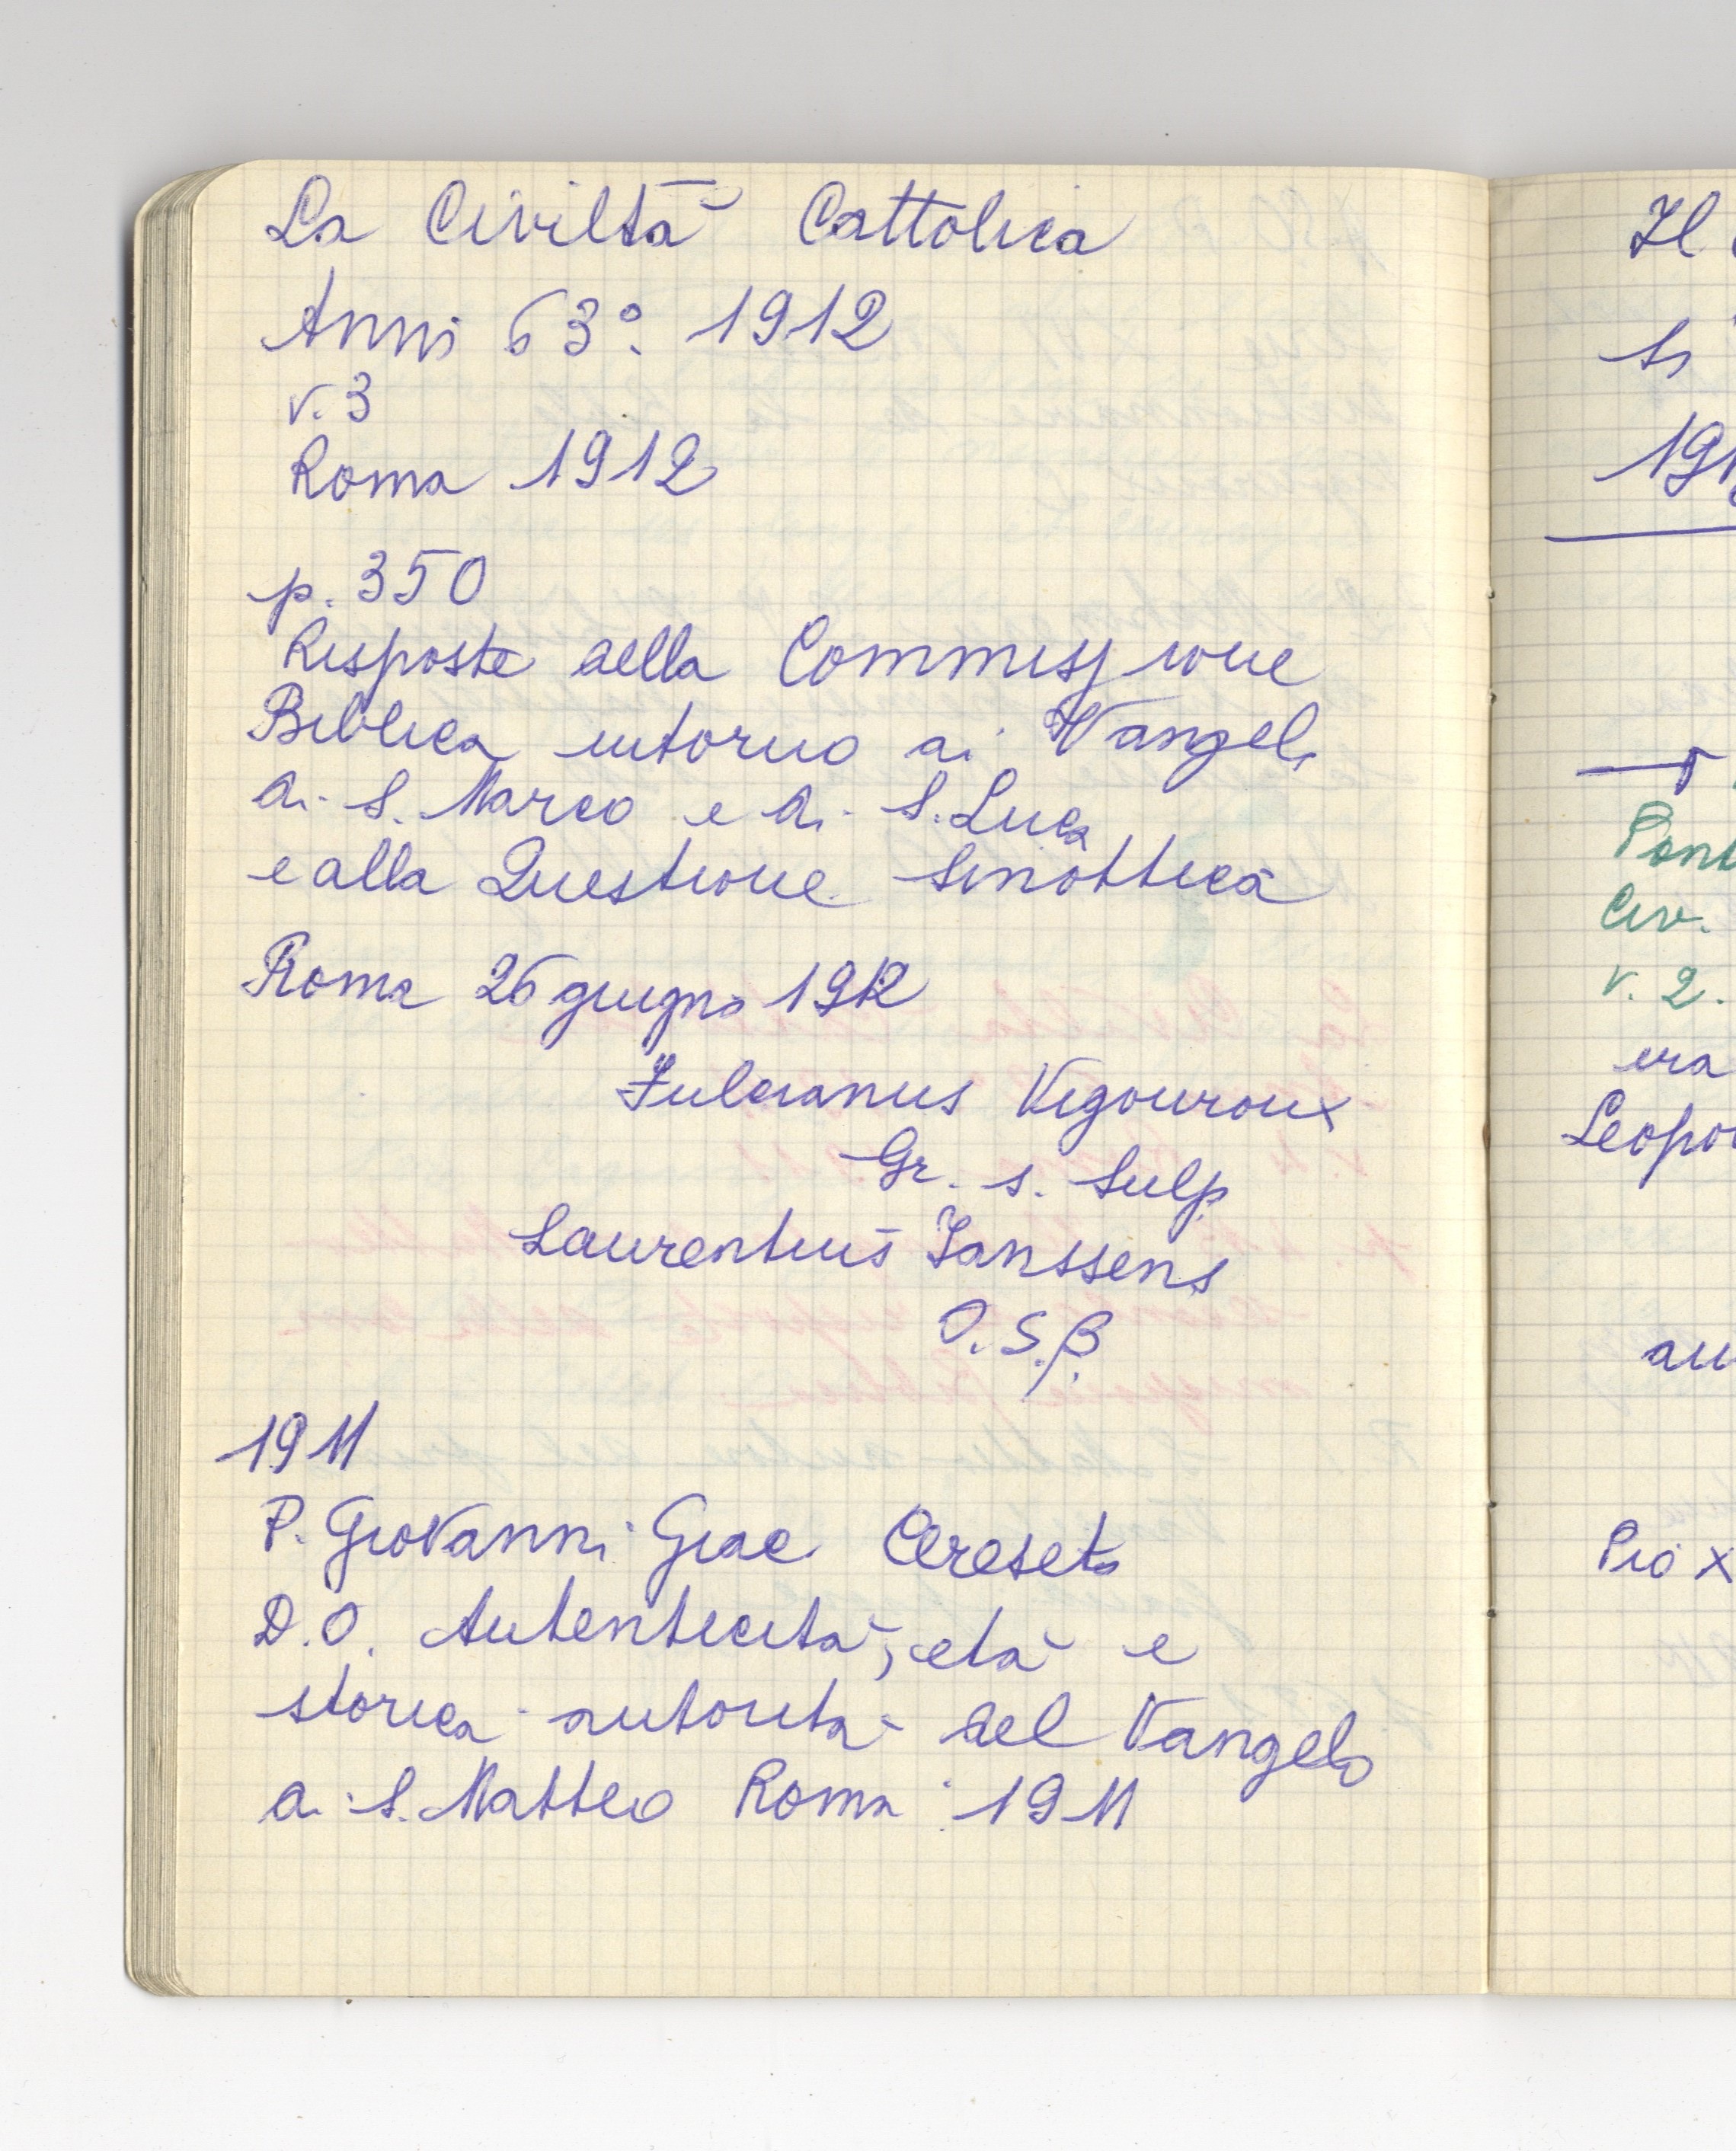 La Civiltà Cattolica
Anni 63° 1912
v. 3
Roma 1912
p. 350
Risposte della Commissione
Biblica intorno ai Vangeli
di S. Marco e di S. Luca
e alla Questione Sinottica
Roma 26 giugno 1912
Fulcranus Vigouroux
Gr. s. Sulp
Laurentius Janssens
O.S.B.
1911
P. Giovanni Giac Cereseto
D.O. Autenticità, età e
storica autorità del Vangelo
di S. Matteo Roma 1911
Il
1912
Pont
Civ.
v. 2.
era
Leopol
au
Pio X